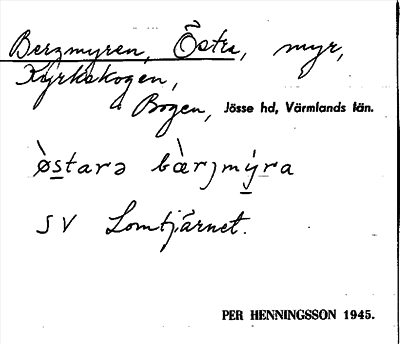 Bergmyren, Östra, myr,
Kyrkskogen,
Bogen, Jösse hd, Värmlands län.
ø̀starə bæ̀rjmýra
SV Lomtjärnet.
PER HENNINGSSON 1945.